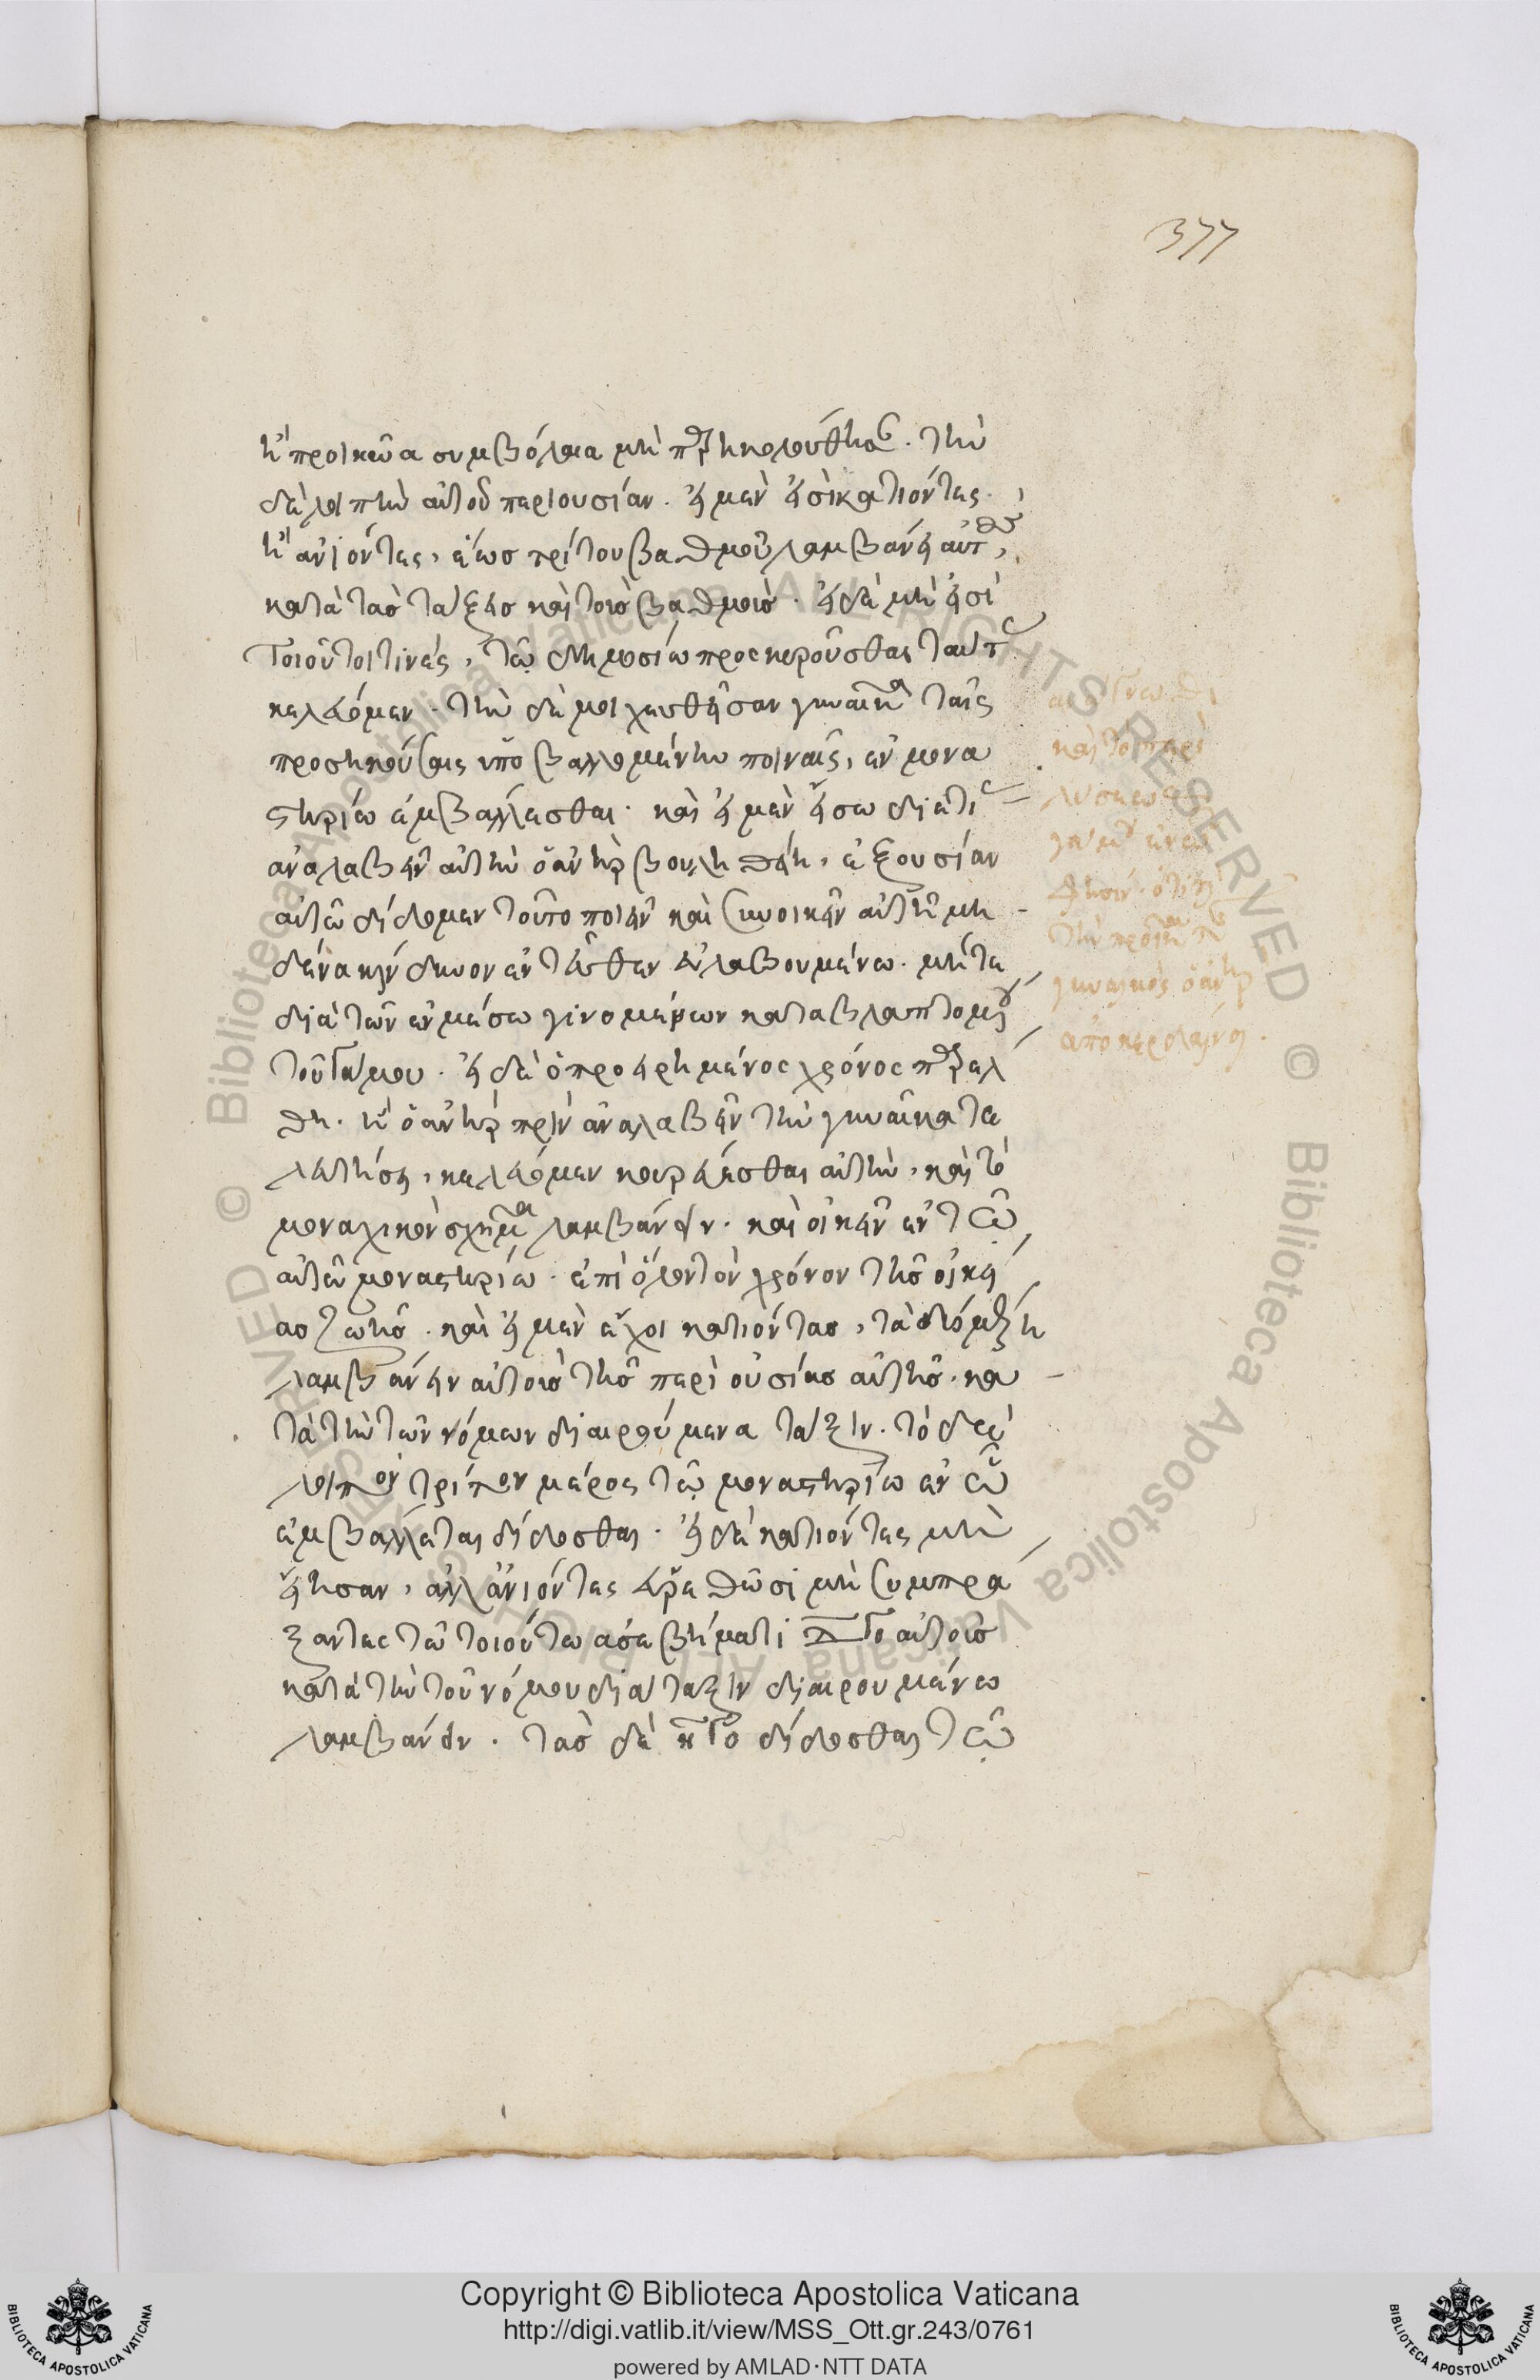 377
ἢ προικῶα συμβόλαια μὴ παρηκολούθησε. τὴν
δὲ λοιπὴν αὐτοῦ περιουσίαν. εἰ μὲν εἰσὶ κατιόντες
ἢ ἀνιόντες, ἕως τρίτου βαθμοῦ λαμβάνειν αὐτοὺς,
κατὰ τὰς τάξεις καὶ τοὺς βαθμούς. εἰ δὲ μὴ εἰσὶ
τοιοῦτοι τινές, τῷ δημοσίῳ προσκυροῦσθαι ταῦτα
κελεύομεν. τὴν δὲ μοιχευθεῖσαν γυναῖκα ταῖς
προσηκούσαις ὑποβαλλομένην ποιναῖς, ἐν μονα
στηρίῳ ἐμβάλλεσθαι. καὶ εἰ μὲν εἴσω διετίας
ἀναλαβεῖν αὐτὴν ὁ ἀνὴρ βουληθείη, ἐξουσίαν
αὐτῷ δίδομεν τοῦτο ποιεῖν καὶ συνοικεῖν αὐτῇ μη
δένα κίνδυνον ἐντεῦθεν εὐλαβουμένῳ. μήτε
διὰ τῶν ἐν μέσῳ γινομένων καταβλαπτομένου
τοῦ γάμου. εἰ δὲ ὁ προειρημένος χρόνος παρέλ
θη. ἢ ὁ ἀνὴρ πρὶν ἀναλαβεῖν τὴν γυναῖκα τε
λευτήσει, κελεύομεν κουρεύεσθαι αὐτὴν, καὶ τὸ
μοναχικὸν σχῆμα λαμβάνειν. καὶ οἰκεῖν ἐν τῷ
αὐτῷ μοναστηρίῳ. ἐπὶ ὅλον τὸν χρόνον τῆς οἰκεί
ας ζωῆς. καὶ εἰ μὲν ἔχοι κατιόντας, τὰ δύο μέρη
λαμβάνειν αὐτοὺς τῆς περιουσίας αὐτῆς. κα
τὰ τὴν τῶν νόμων διαιρούμενα τάξιν. τὸ δὲ
λοιπὸν τρίτον μέρος τῷ μοναστηρίῳ ἐν ᾧ
ἐμβάλλεται δίδοσθαι. εἰ δὲ κατιόντες μὴ
εἴησαν, ἀλλ' ἀνιόντες εὑρεθῶσι μὴ συμπρά
ξαντες τῷ τοιούτῳ ἀσεβήματι αὐτοὺς
κατὰ τὴν τοῦ νόμου διάταξιν διαιρουμένῳ
λαμβάνειν. τὰς δὲ δίδοσθαι τῷ
καὶ τὸ περὶ
λύσεως
τὴν προῖκα τῆς
γυναικὸς ὁ ἀνὴρ
ἀποκερδαίνει.
Copyright © Biblioteca Apostolica Vaticana
http://digi.vatlib.it/view/MSS_Ott.gr.243/0761
powered by AMLAD·NTT DATA
BIBLIOTECA APOSTOLICA VATICANA
BIBLIOTECA APOSTOLICA VATICANA
© Biblioteca Apostolica Vaticana ALL RIGHTS RESERVED © Biblioteca Apostolica Vaticana ALL RIGHTS RESERVED